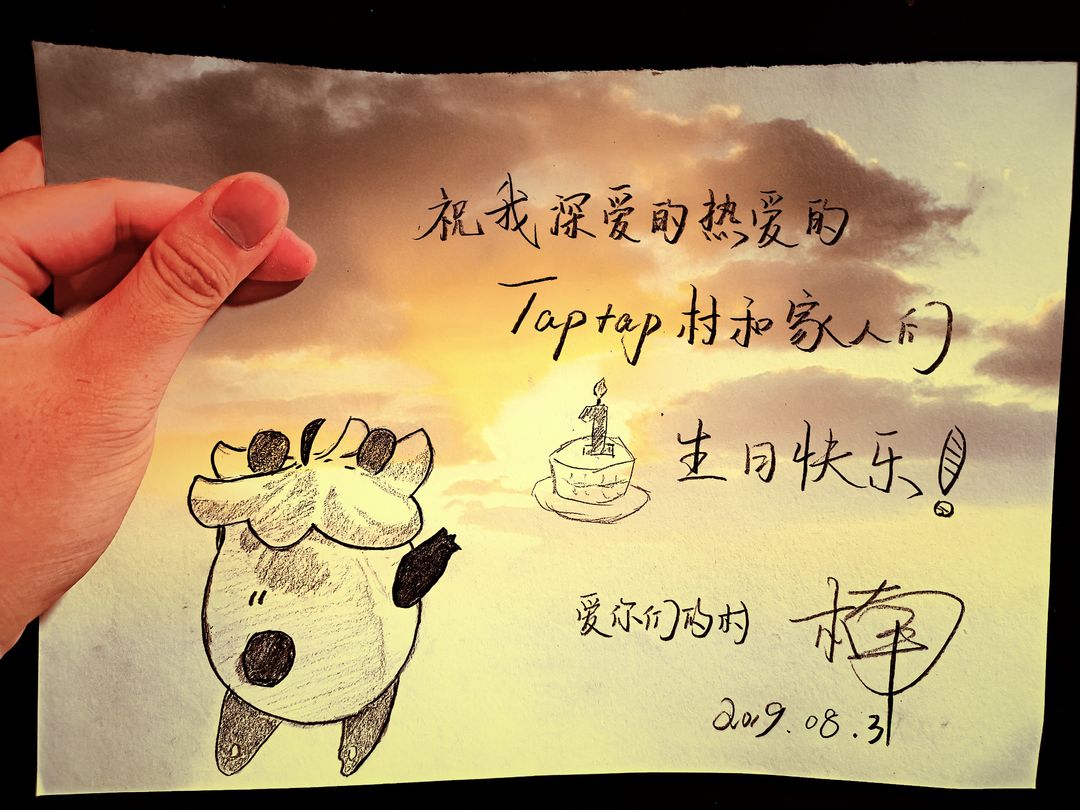 祝我深爱的热爱的
Taptap村和家人们
1 生日快乐！
爱你们的村 楠
2019.08.31